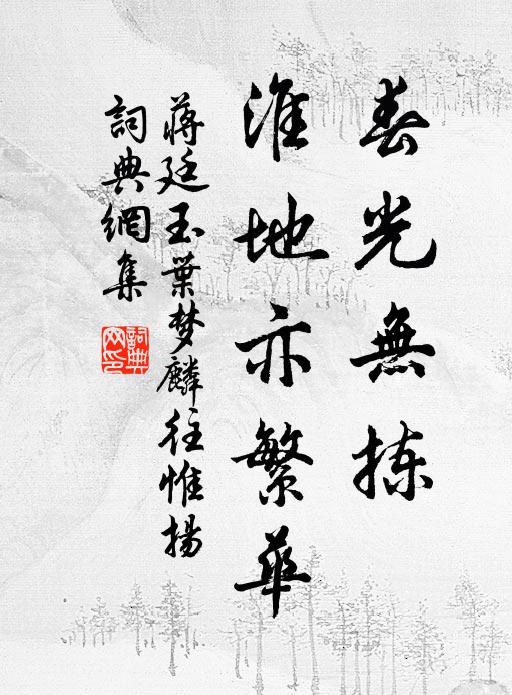 春光無拣
淮地亦繁華
蒋廷玉葉梦麟往惟揚
詞典網集
詞典
网印